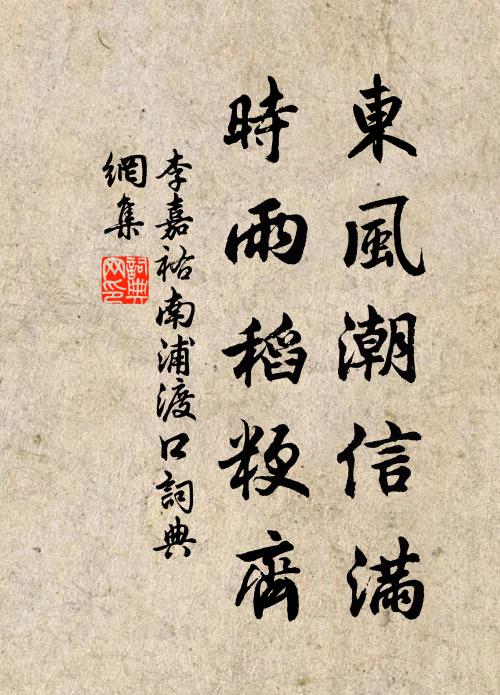 東風潮信滿
時雨稻粳齊
李嘉祐南浦渡口詞典
網集
詞典网印